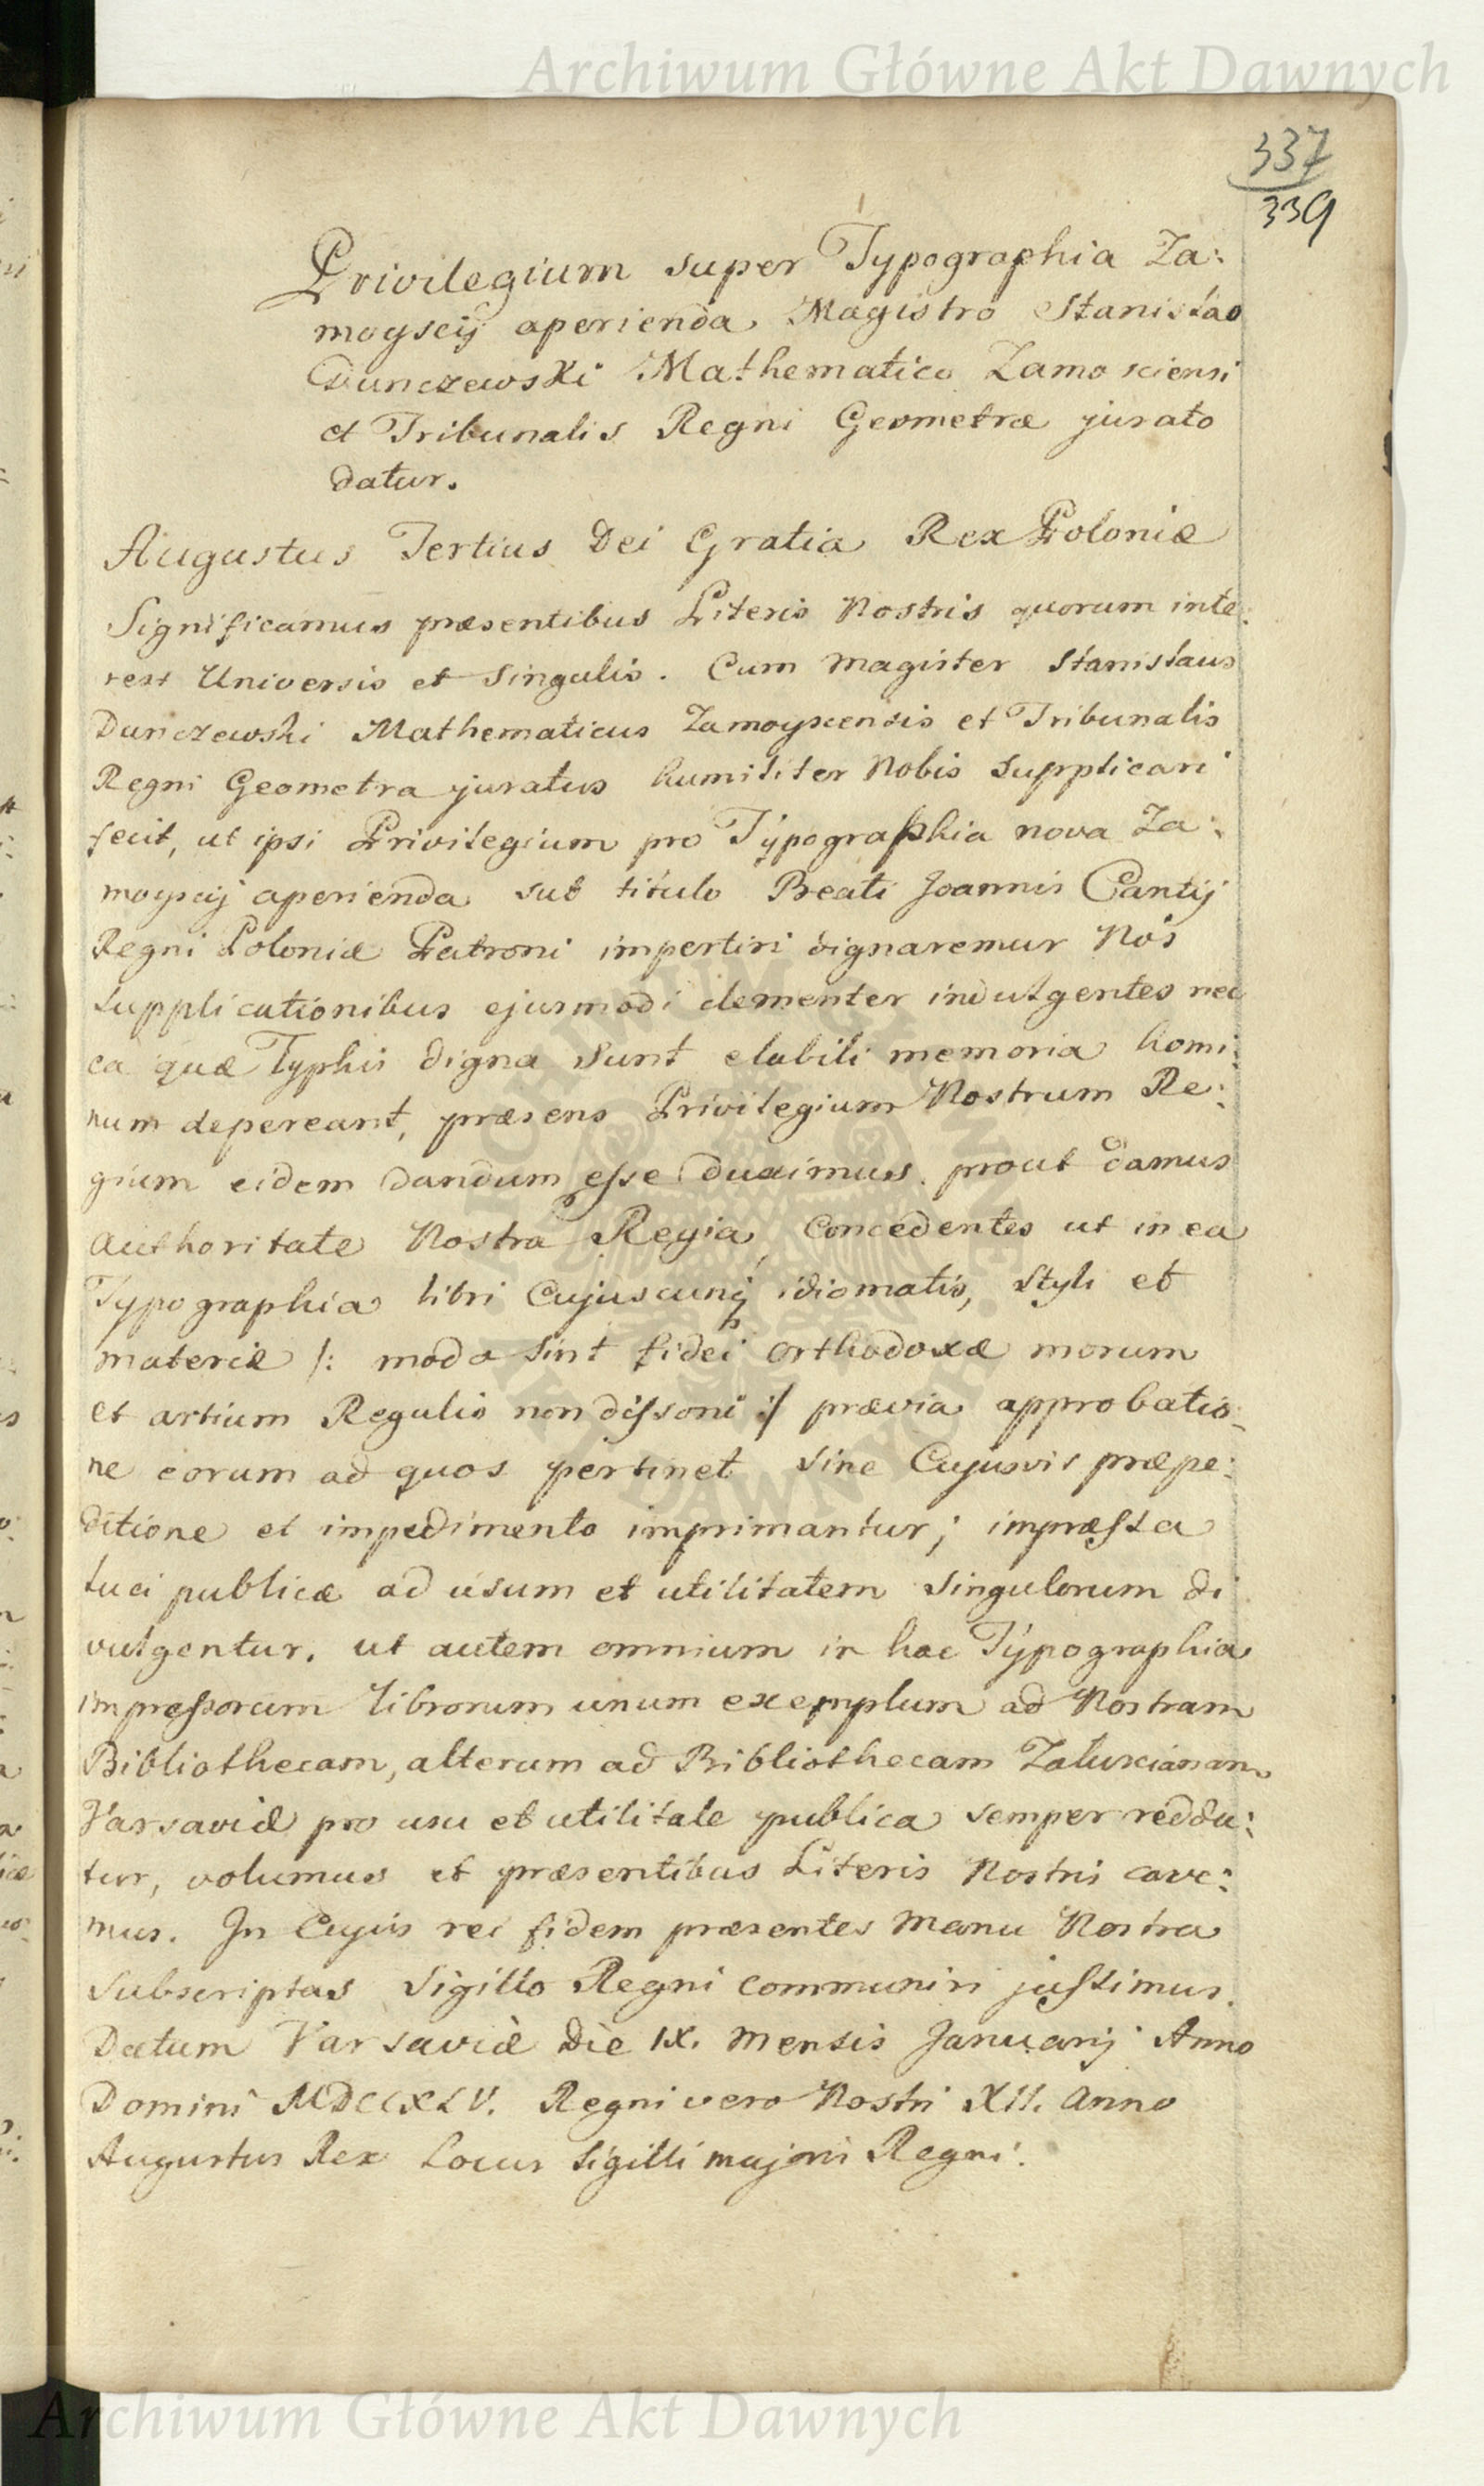 Archiwum Główne Akt Dawnych
337
339
Privilegium super Typographia Za:
moyscij aperienda Magistro Stanislao
Dunczewski Mathematico Zamosciensi
et Tribunalis Regni Geometræ jurato
datur.
Augustus Tertius Dei Gratia Rex Poloniæ
Significamus præsentibus Literis Nostris quorum inte:
rest Universis et Singulis. Cum Magister Stanislaus
Dunczewski Mathematicus Zamoyscensis et Tribunalis
Regni Geometra juratus humiliter Nobis Supplicari
fecit, ut ipsi Privilegium pro Typographia nova Za:
moyscij aperienda sub titulo Beati Joannis Cantij
Regni Poloniæ Patroni impertiri dignaremur Nos
supplicationibus ejusmodi clementer indulgentes nec
ea quæ Typhis digna Sunt elabili memoria homi:
num depereant, præsens Privilegium Nostrum Re:
gium eidem dandum esse duximus. prout damus
authoritate Nostra Regia, Concedentes ut in ea
Typographia libri Cujuscunq idiomatis, Styli et
materiæ /: modo Sint fidei orthodoxæ morum
et artium Regulis non dissoni :/ prævia approbatio:
ne eorum ad quos pertinet Sine Cujusvis præpe:
ditione et impedimento imprimantur; impræssa
luci publicæ ad usum et utilitatem Singulorum di
vulgentur. ut autem omnium in hac Typographia
impressorum librorum unum exemplum ad Nostram
Bibliothecam, alterum ad Bibliothecam Zaluscianam
Varsaviæ pro usu et utilitate publica semper reddu:
tur, volumus et præsentibus Literis Nostris cave:
mus. In Cujus rei fidem præsentes Manu Nostra
Subscriptas Sigillo Regni communiri jussimus.
Datum Varsaviæ Die IX. Mensis Januarij Anno
Domini MDCCXLV. Regni vero Nostri XII. Anno
Augustus Rex Locus Sigilli majoris Regni.
Archiwum Główne Akt Dawnych